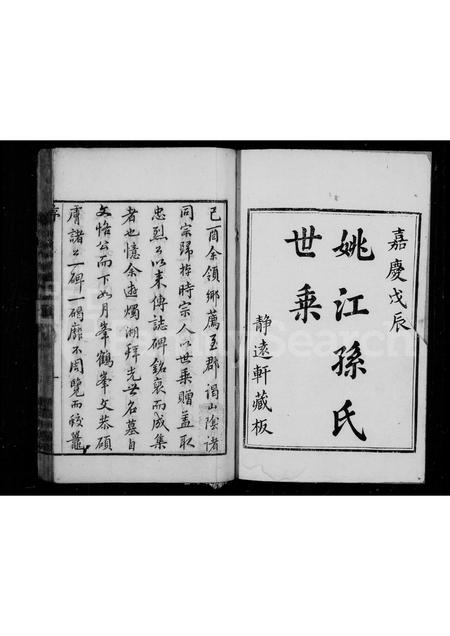 嘉慶戊辰
姚江孫氏
世乘
静遠軒藏板
己酉余領鄉薦至郡謁山陰諸
同宗歸按時宗人以世乘贈盖取
忠烈公以来傳誌碑銘裒而成集
者也憶余逰燭湖拜先世名墓自
文恪公而下如月峯鶴峯文恭碩
膚諸公一碑一碣靡不周覽而
序
一
FamilySearch